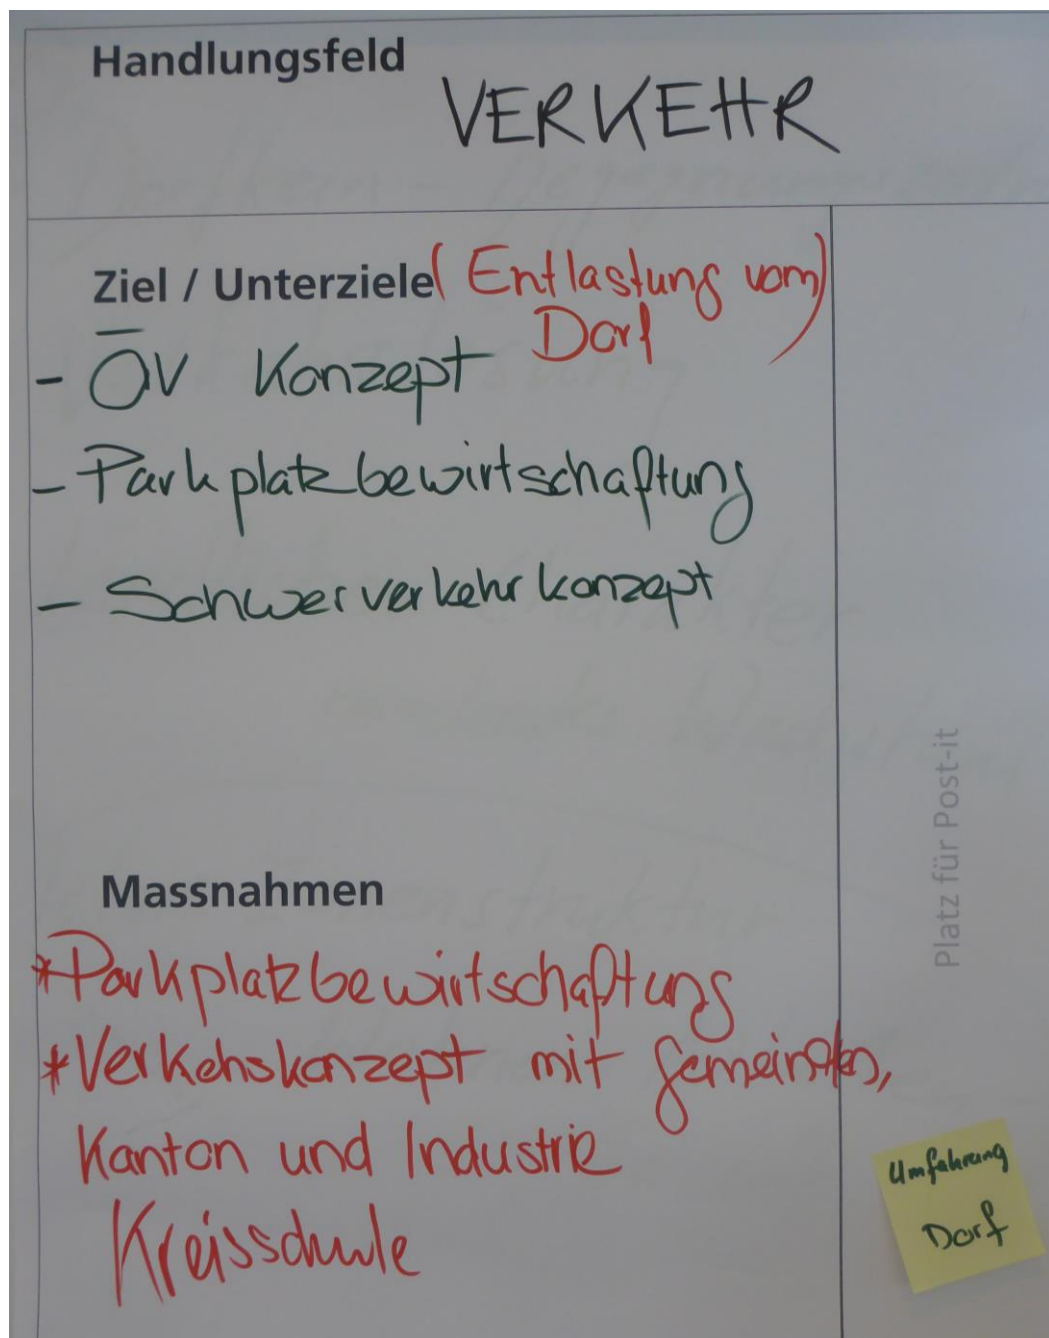 Handlungsfeld
VERKEHR
Ziel / Unterziele (Entlastung vom
Dorf)
- ÖV Konzept
- Parkplatzbewirtschaftung
- Schwerverkehrkonzept
Massnahmen
*Parkplatzbewirtschaftung
*Verkehskonzept mit Gemeinden,
Kanton und Industrie
Kreisschule
Platz für Post-it
Umfahrung
Dorf